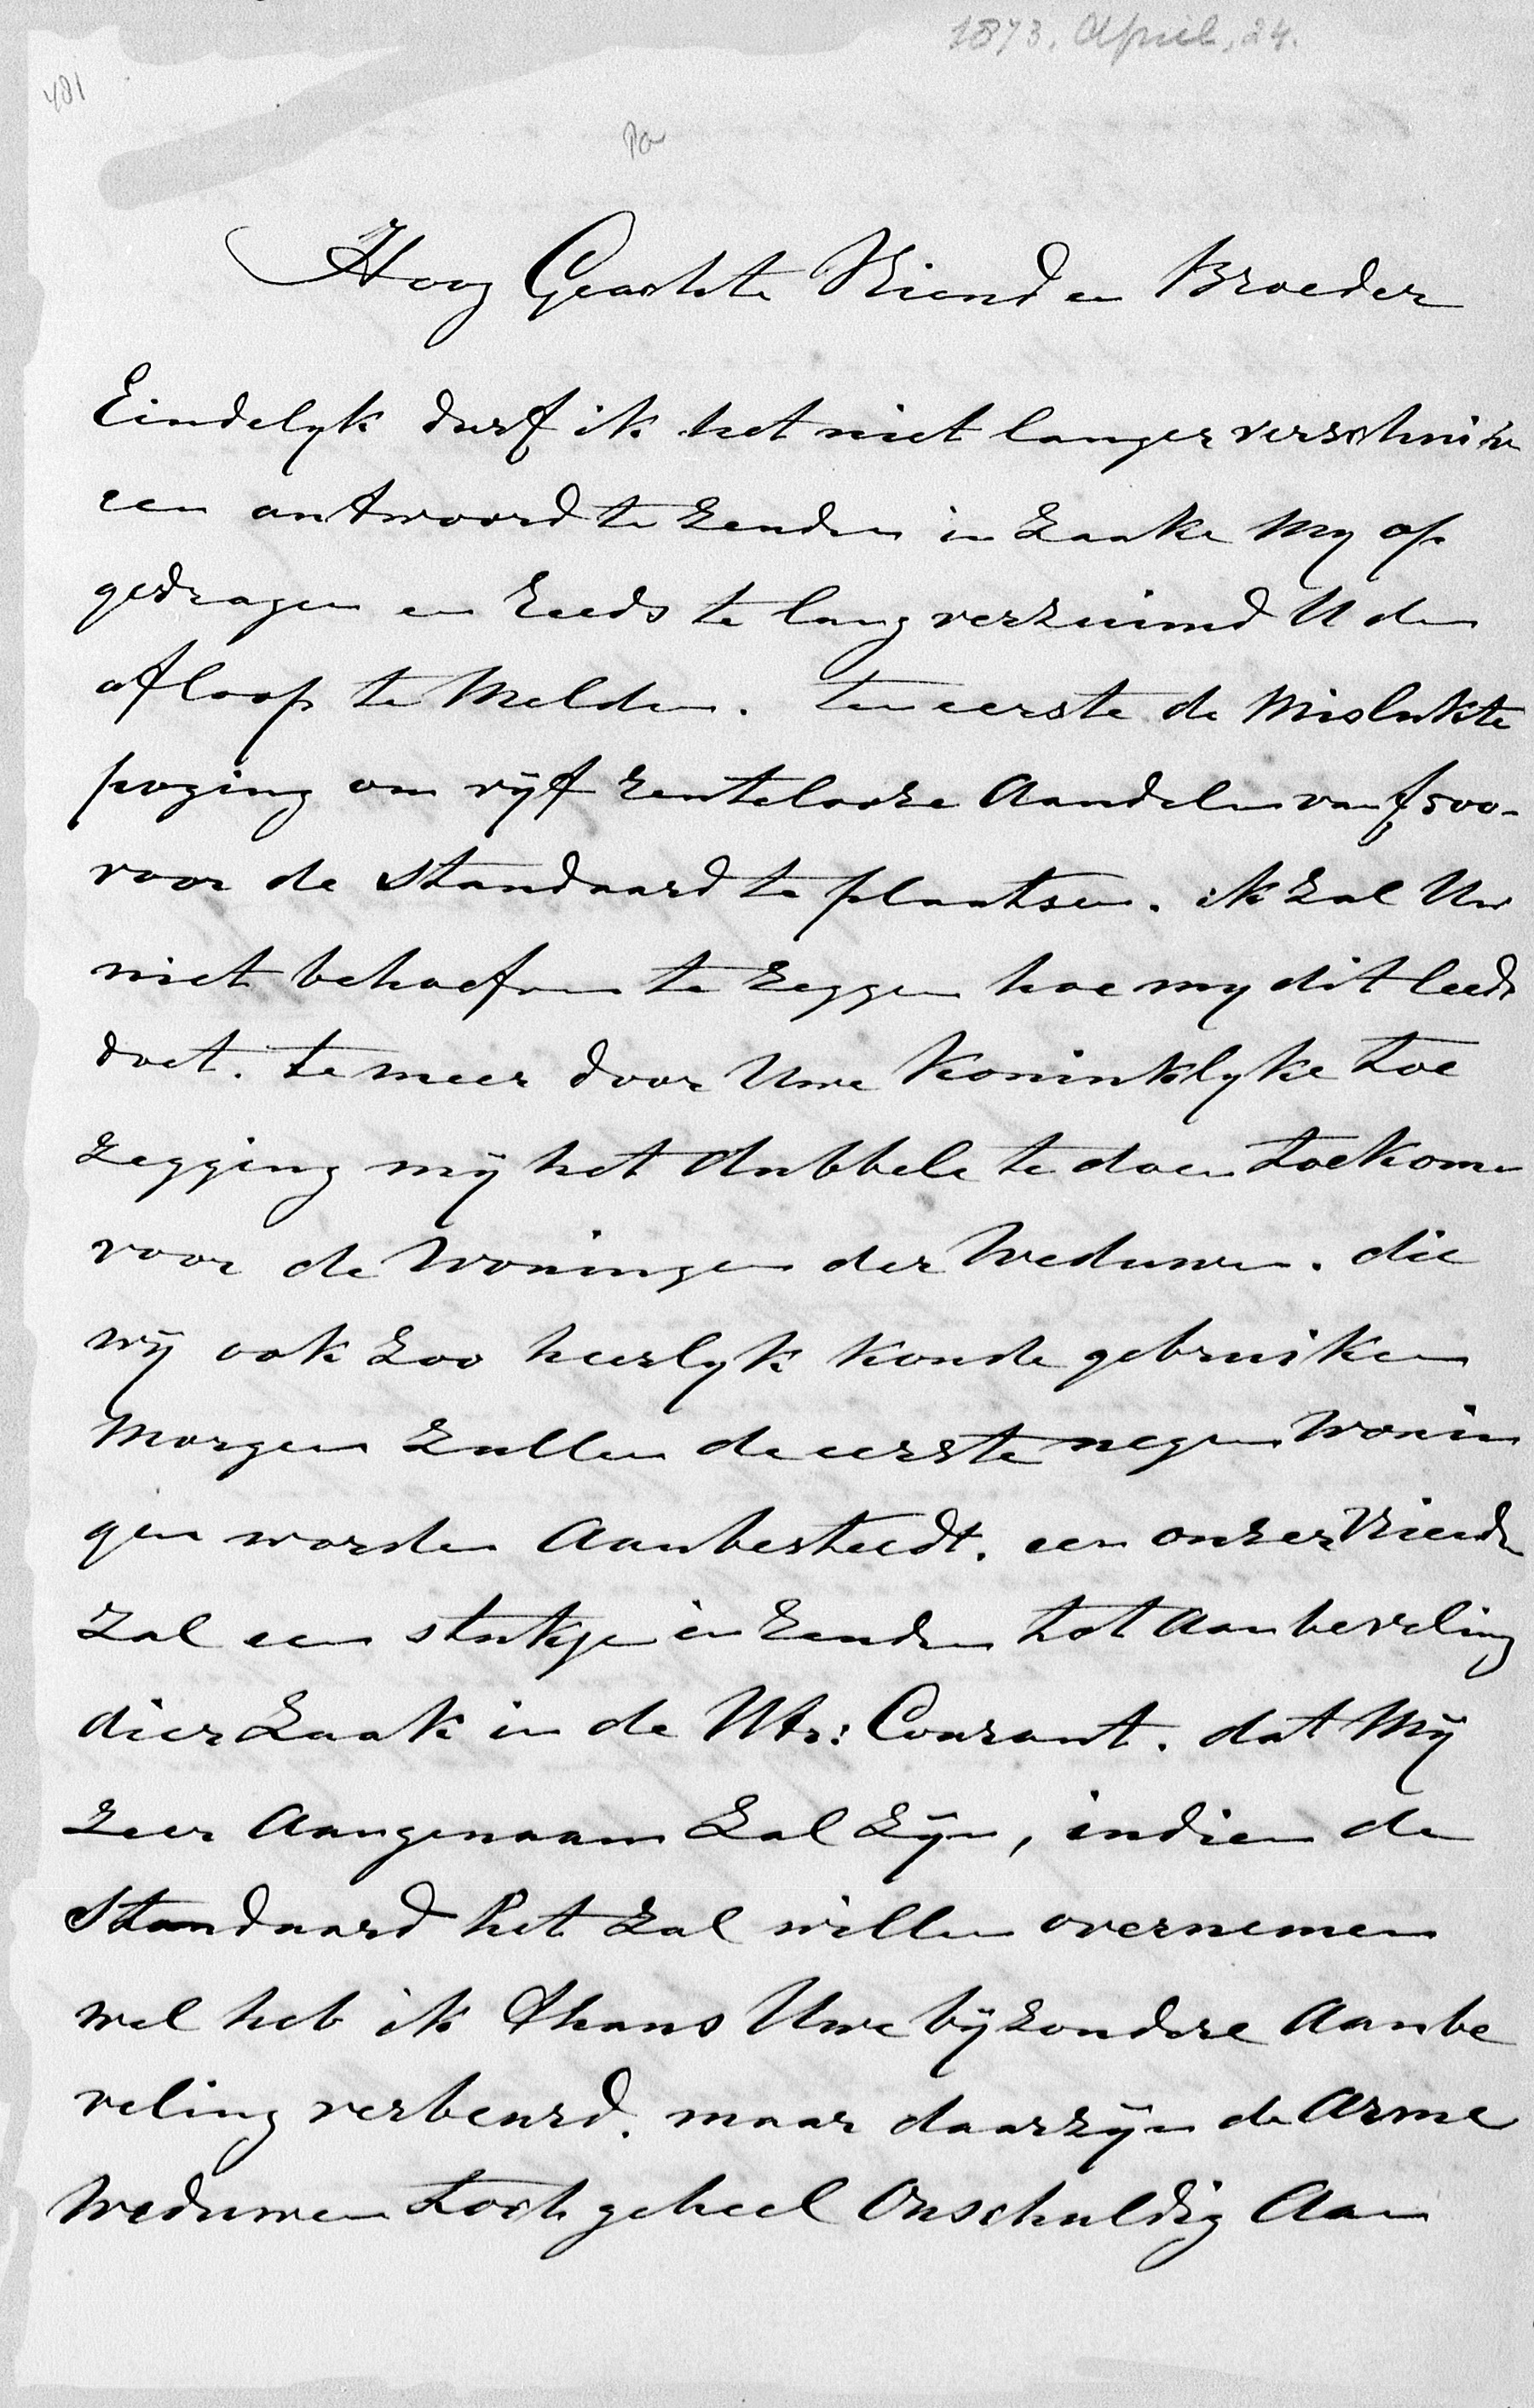 1873. April, 24.
481
Hoog Geachte Vriend en Broeder
Eindelyk durf ik het niet langer verschuiven
een antwoord te zenden in zaake my op
gedragen en reeds te lang verzuimd U den
afloop te Melden. ten eerste de Mislukte
poging om vyf rentelooze Aandelen van f 500-
voor de Standaard te plaatsen. ik zal Uw
niet behoefen te zeggen hoe my dit leed
doet. te meer door Uwe Koninklyke toe
zegging mÿ het dubbele te doen toekomen
voor de Woningen der Weduwen. die
wÿ ook zoo heerlyk konde gebruiken
Morgen zullen de eerste negen Wonin
gen worden Aanbesteedt. een onzer Vrienden
zal een stukje in zenden tot Aanbeveling
dier zaak in de Utr: Courant. dat Mÿ
zeer Aangenaam zal zÿn, indien de
Standaard het zal willen overnemen
wel heb ik thans Uwe bÿzondere Aanbe
veling verbeurd. maar daar zÿn de Arme
Weduwen toch geheel Onschuldig Aan